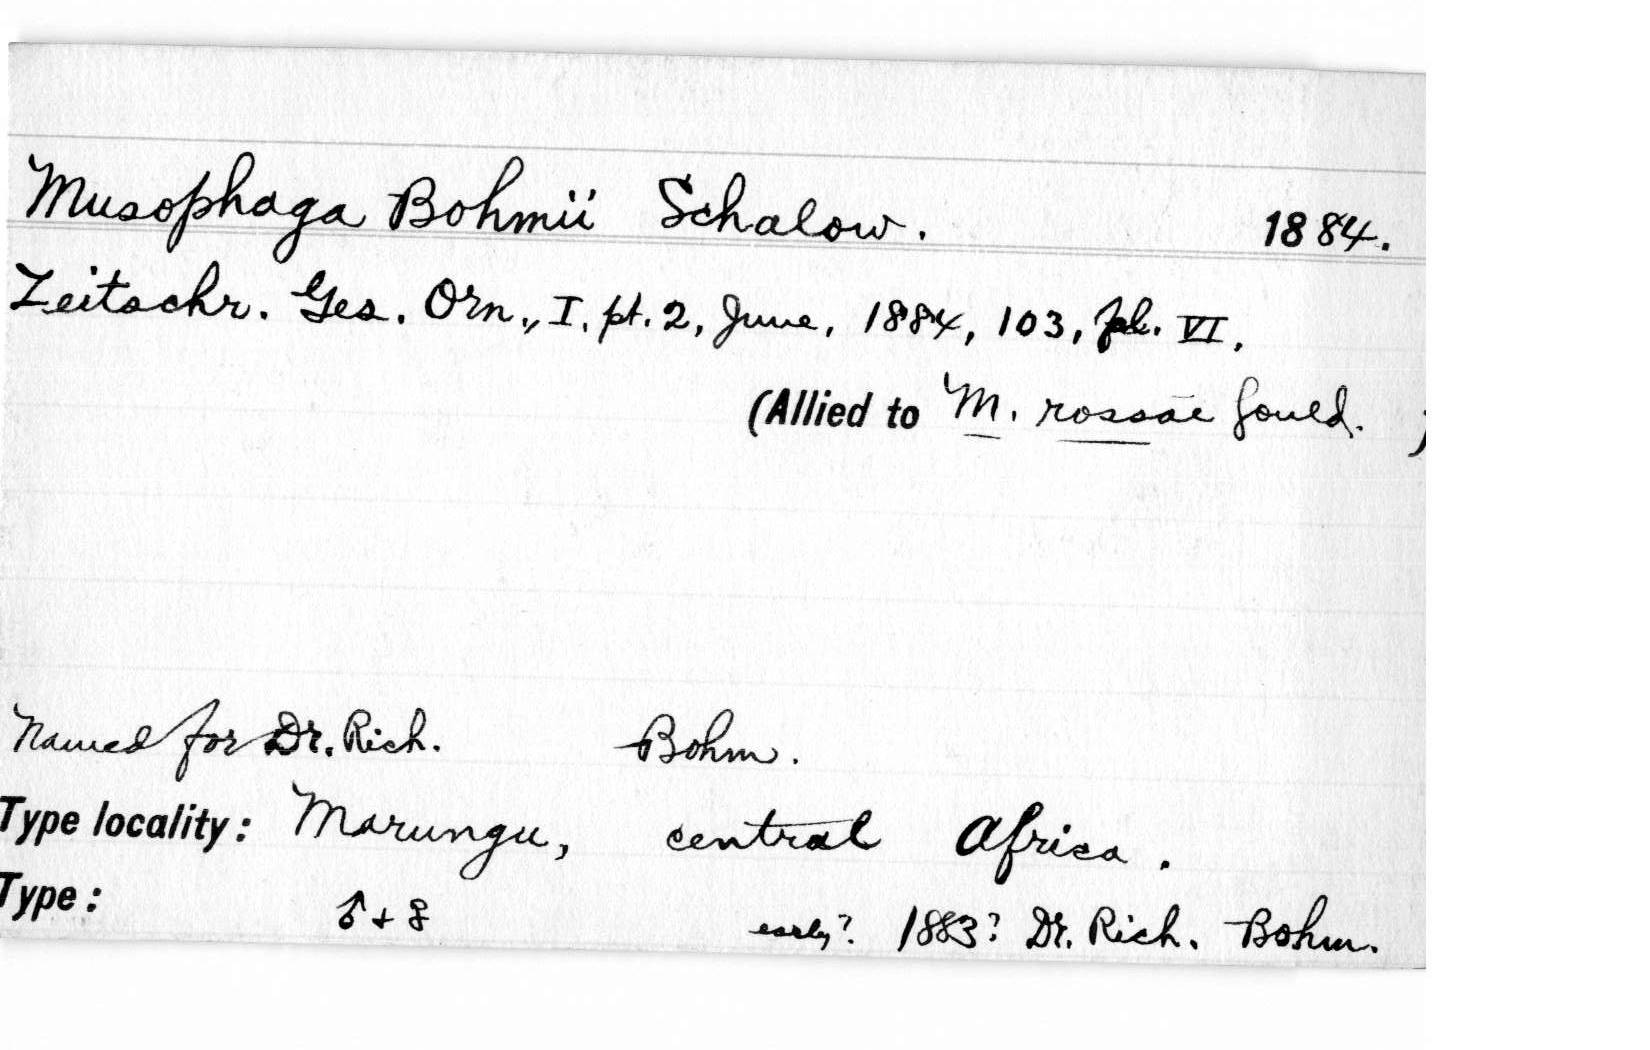 Musophaga Bohmii Schalow. 1884.
Zeitschr. Ges. Orn., I, pt. 2, June, 1884, 103, pl. VI.
(Allied to M. rossae Gould. )
Named for Dr. Rich. Bohm.
Type locality: Marungu, central Africa.
Type: ♂ + ♀ early? 1883? Dr. Rich. Bohm.